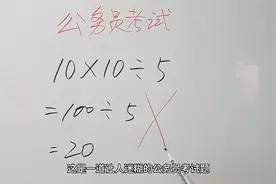 公务员考试
10×10÷5
=100÷5
=20
这是一道让人迷糊的公务员考试题